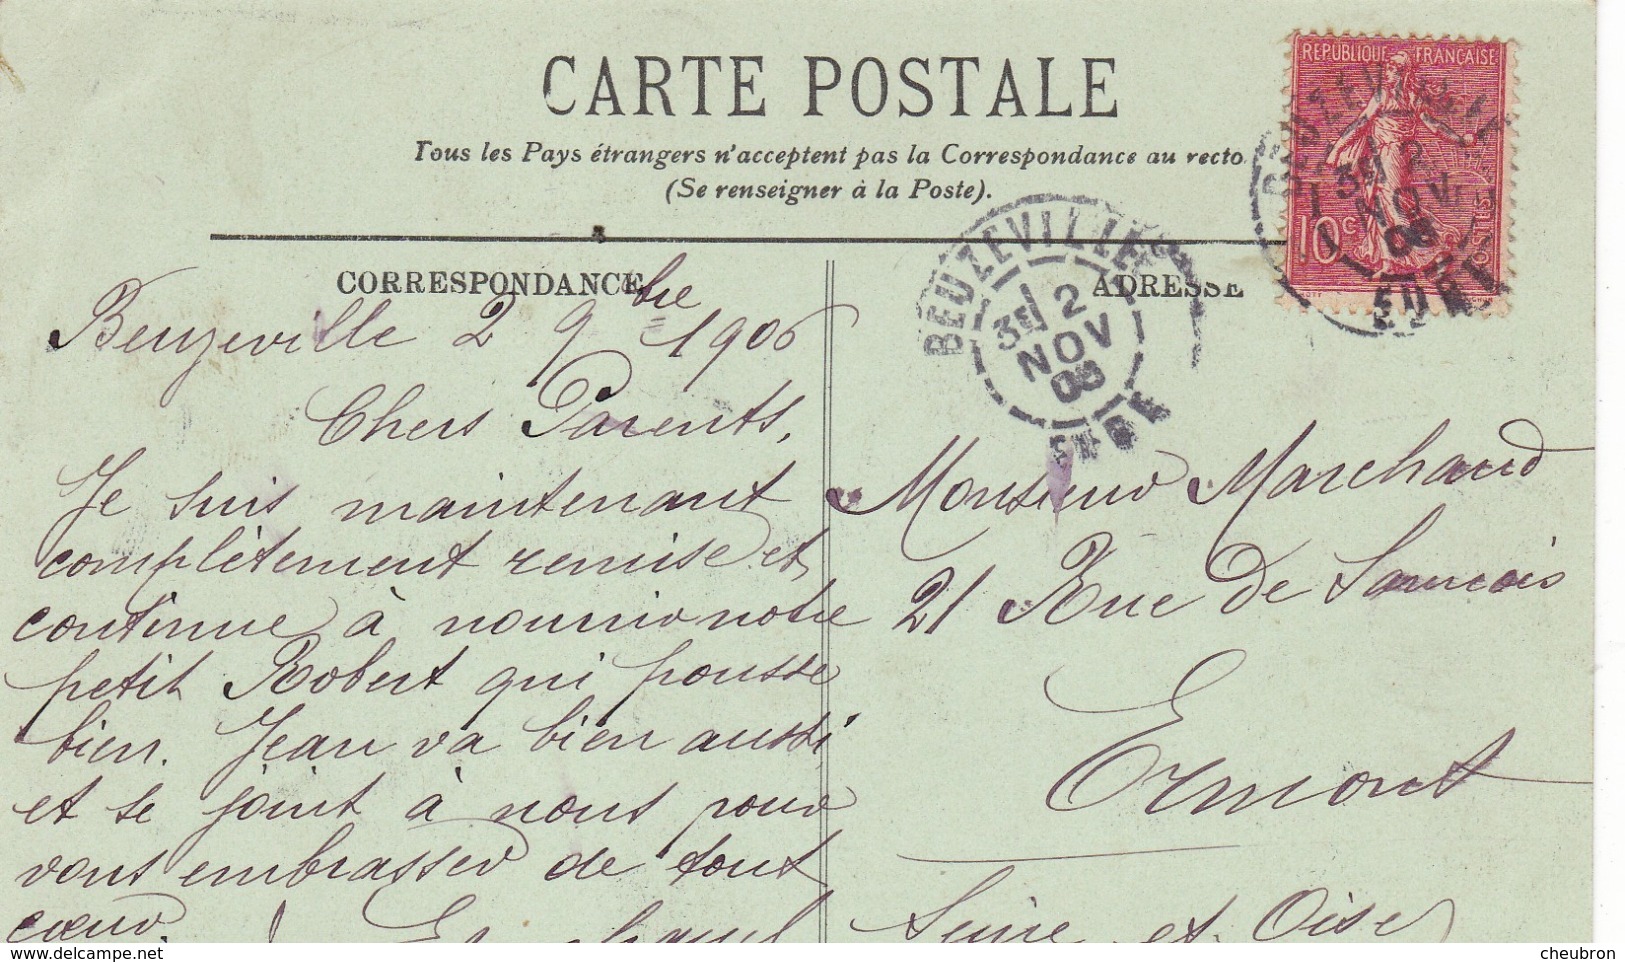 CARTE POSTALE
Tous les Pays étrangers n'acceptent pas la Correspondance au recto
(Se renseigner à la Poste).
REPUBLIQUE FRANÇAISE
10c
POSTES
BEUZEVILLE
3E 2
NOV
06
EURE
BEUZEVILLE
3E 2
NOV
06
EURE
CORRESPONDANCE
ADRESSE
Beuzeville 2 9bre 1906
Chers Parents,
Je suis maintenant
complètement remise et
continue à nourrir notre
petit Robert qui pousse
bien. Jean va bien aussi
et se joint à nous pour
vous embrasser de tout
cœur.
Monsieur Marchand
21 Rue de Sannois
Ermont
Seine et Oise
cheubron